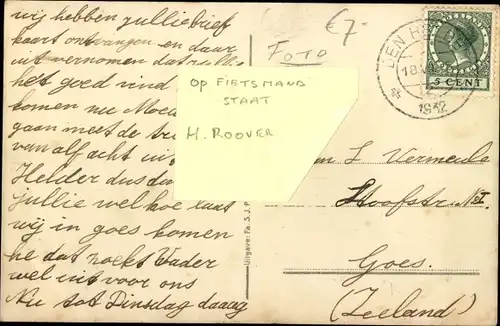 wij hebben jullie brief
kaart ontvangen en daar
uit vernomen dat jullie
het goed vind
komen nu Moe
gaan meet de tre
van alf acht uit
Helder dus da
jullie wel hoe laat
wij in goes komen
he dat zoekt Vader
wel uit voor ons
Nu tot Dinsdag daaag
€7-
FOTO
OP FIETSMAND
STAAT
H. ROOVER
Uitgave: Fa. S. J. P
DEN HE
18.V
1932
NEDERLAND
5 CENT
am J Vermeule
Hoofstr. No 1
Goes.
(Zeeland)